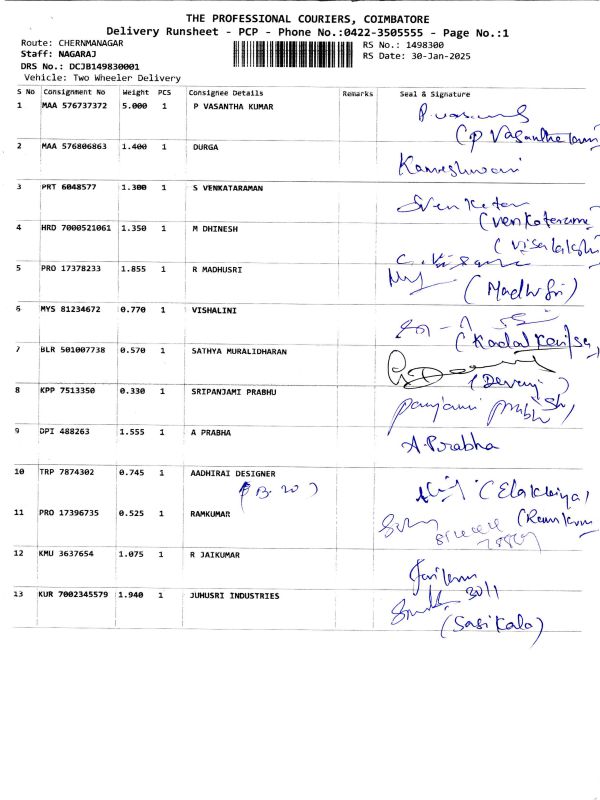 THE PROFESSIONAL COURIERS, COIMBATORE
Delivery Runsheet - PCP - Phone No.:0422-3505555 - Page No.:1
Route: CHERNMANAGAR RS No.: 1498300
Staff: NAGARAJ RS Date: 30-Jan-2025
DRS No.: DCJB149830001
Vehicle: Two Wheeler Delivery
S No Consignment No Weight PCS Consignee Details Remarks Seal & Signature
1 MAA 576737372 5.000 1 P VASANTHA KUMAR
2 MAA 576806863 1.400 1 DURGA
Kameshwari
3 PRT 6048577 1.300 1 S VENKATARAMAN
4 HRD 7000521061 1.350 1 M DHINESH
(Visalakshi
5 PRO 17378233 1.855 1 R MADHUSRI
(Madhu Sri)
6 MYS 81234672 0.770 1 VISHALINI
7 BLR 501007738 0.570 1 SATHYA MURALIDHARAN
8 KPP 7513350 0.330 1 SRIPANJAMI PRABHU
9 DPI 488263 1.555 1 A PRABHA
A. Prabha
10 TRP 7874302 0.745 1 AADHIRAI DESIGNER
11 PRO 17396735 0.525 1 RAMKUMAR
12 KMU 3637654 1.075 1 R JAIKUMAR
13 KUR 7002345579 1.940 1 JUHUSRI INDUSTRIES
30/1
(Sasikala)